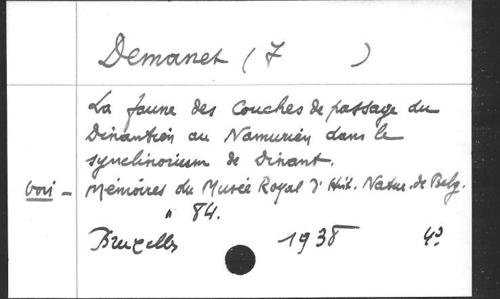 Demanet (J )
La faune des Couches de passage du
Dinantien au Namurien dans le
synclinorium de Dinant.
voir - Mémoires du Musée Royal d'Hist. Natur. de Belg.
" 84.
Bruxelles 1938 4º